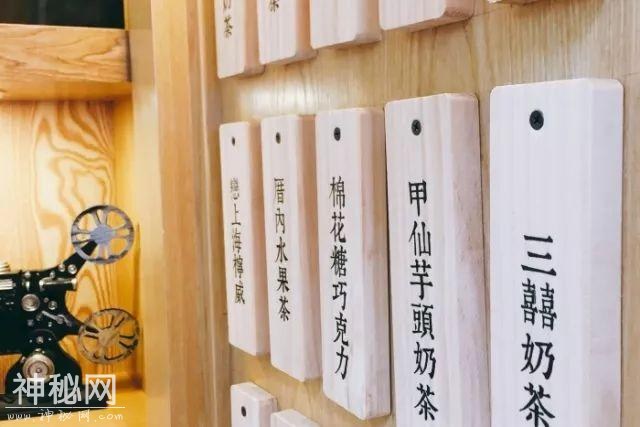 奶茶
奶茶
戀上海檸威
厝內水果茶
棉花糖巧克力
甲仙芋頭奶茶
三囍奶茶
神秘网
www.神秘网.com